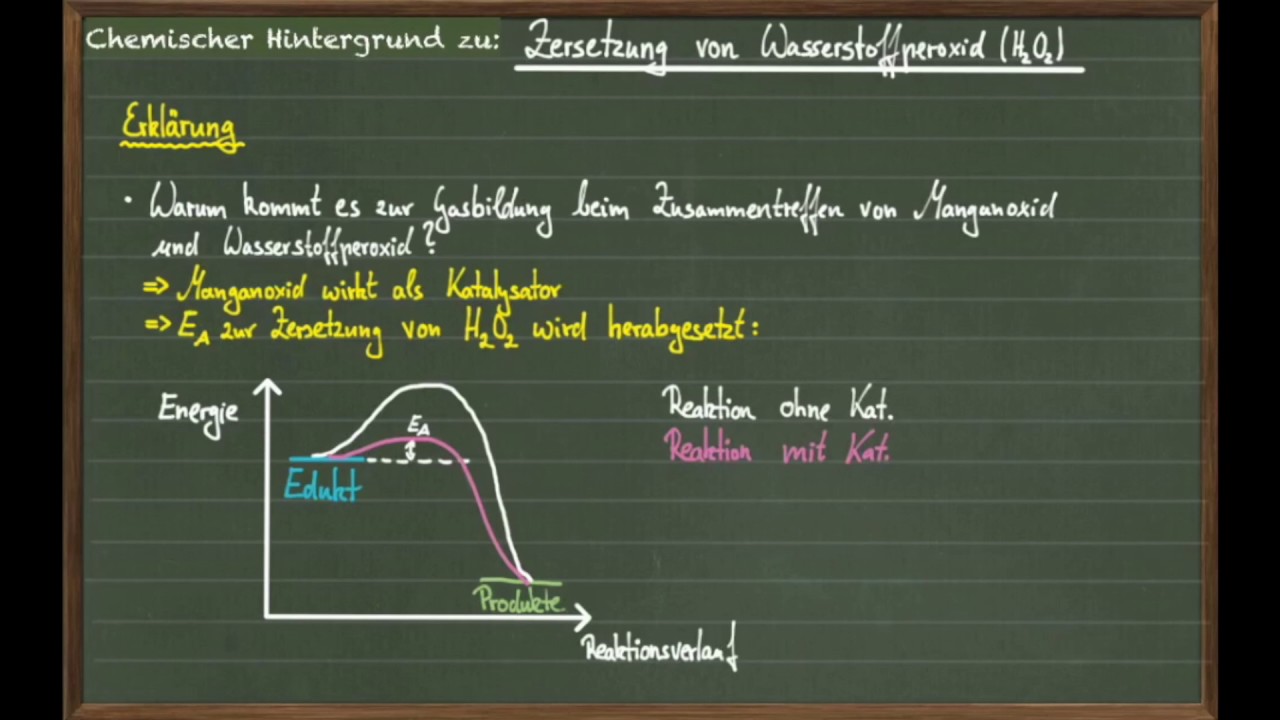 Chemischer Hintergrund zu: Zersetzung von Wasserstoffperoxid (H₂O₂)
Erklärung
· Warum kommt es zur Gasbildung beim Zusammentreffen von Manganoxid
und Wasserstoffperoxid?
=> Manganoxid wirkt als Katalysator
=> E_A zur Zersetzung von H₂O₂ wird herabgesetzt:
Energie
Reaktion ohne Kat.
E_A
Reaktion mit Kat.
Edukt
Produkte
Reaktionsverlauf